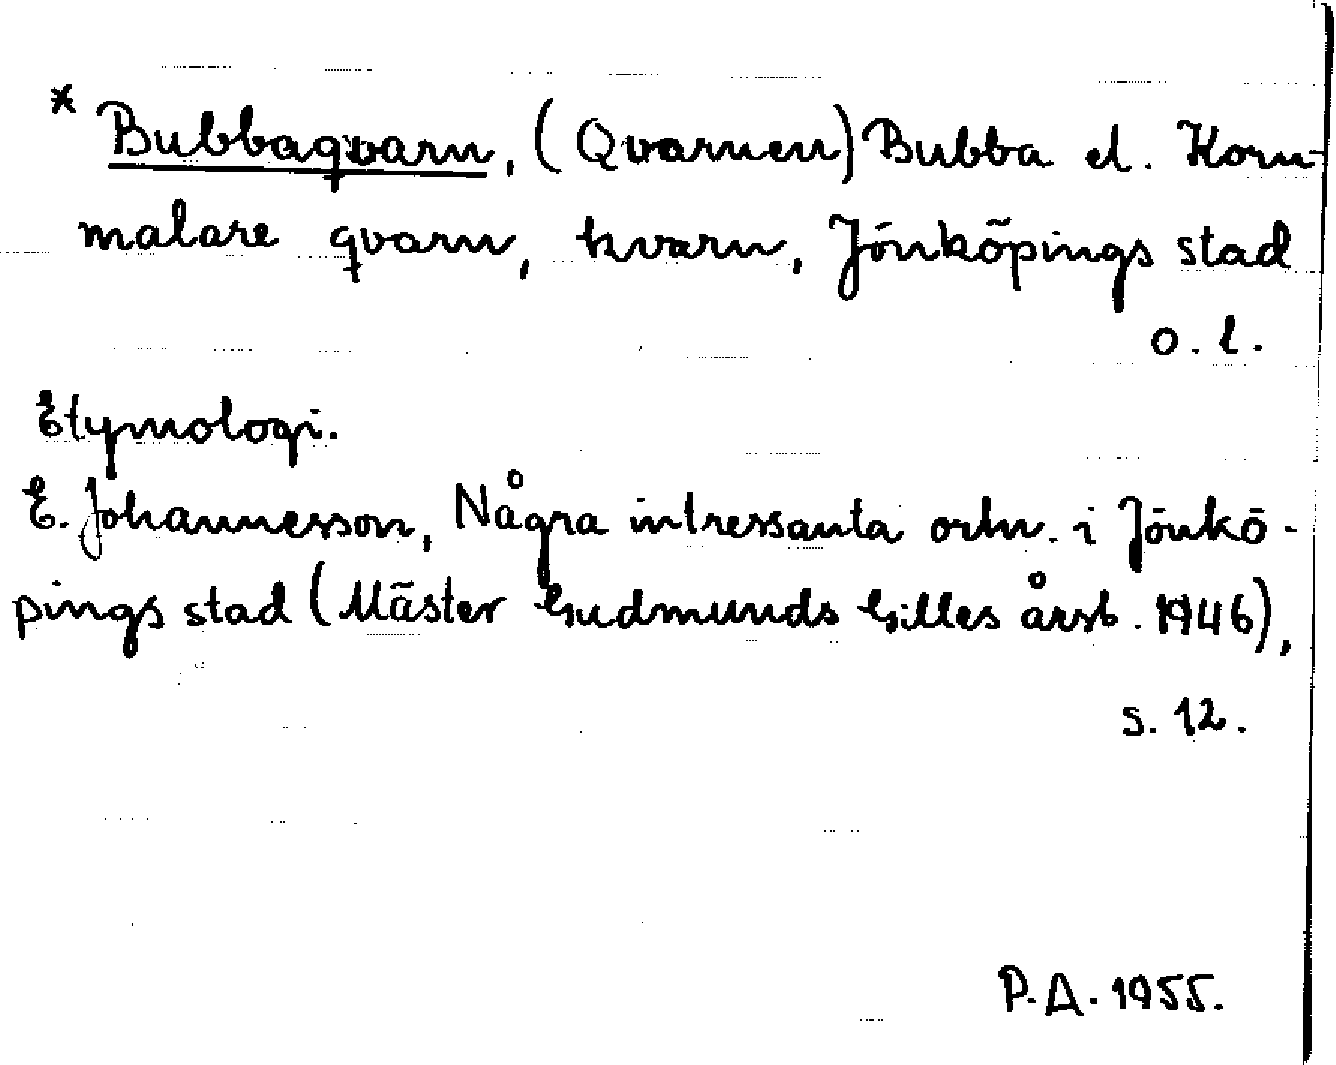 * Bubbaqvarn, (Qvarnen) Bubba el. Korn-
malare qvarn, kvarn, Jönköpings stad
o. l.
Etymologi.
E. Johannesson, Några intressanta ortn. i Jönkö-
pings stad (Mäster Gudmunds Gilles årsb. 1946),
s. 12.
P. A. 1955.